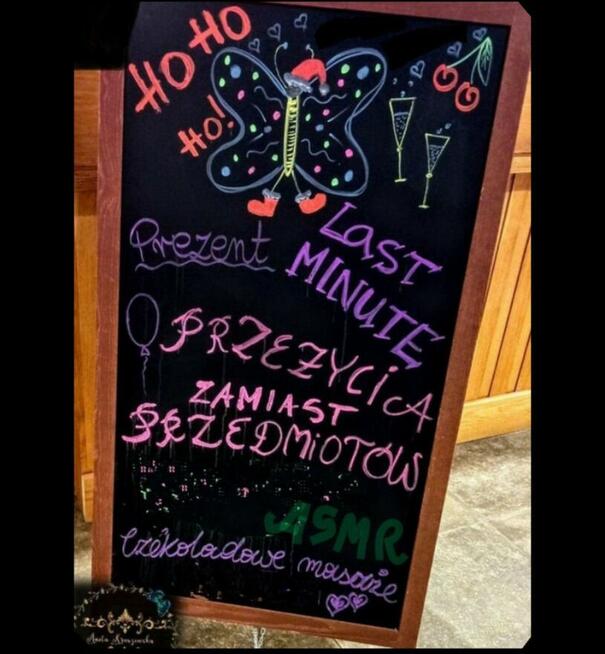 HO HO
HO!
Prezent
LAST
MINUTE
PRZEŻYCIA
ZAMIAST
PRZEDMIOTÓW
ASMR
Czekoladowe masaże